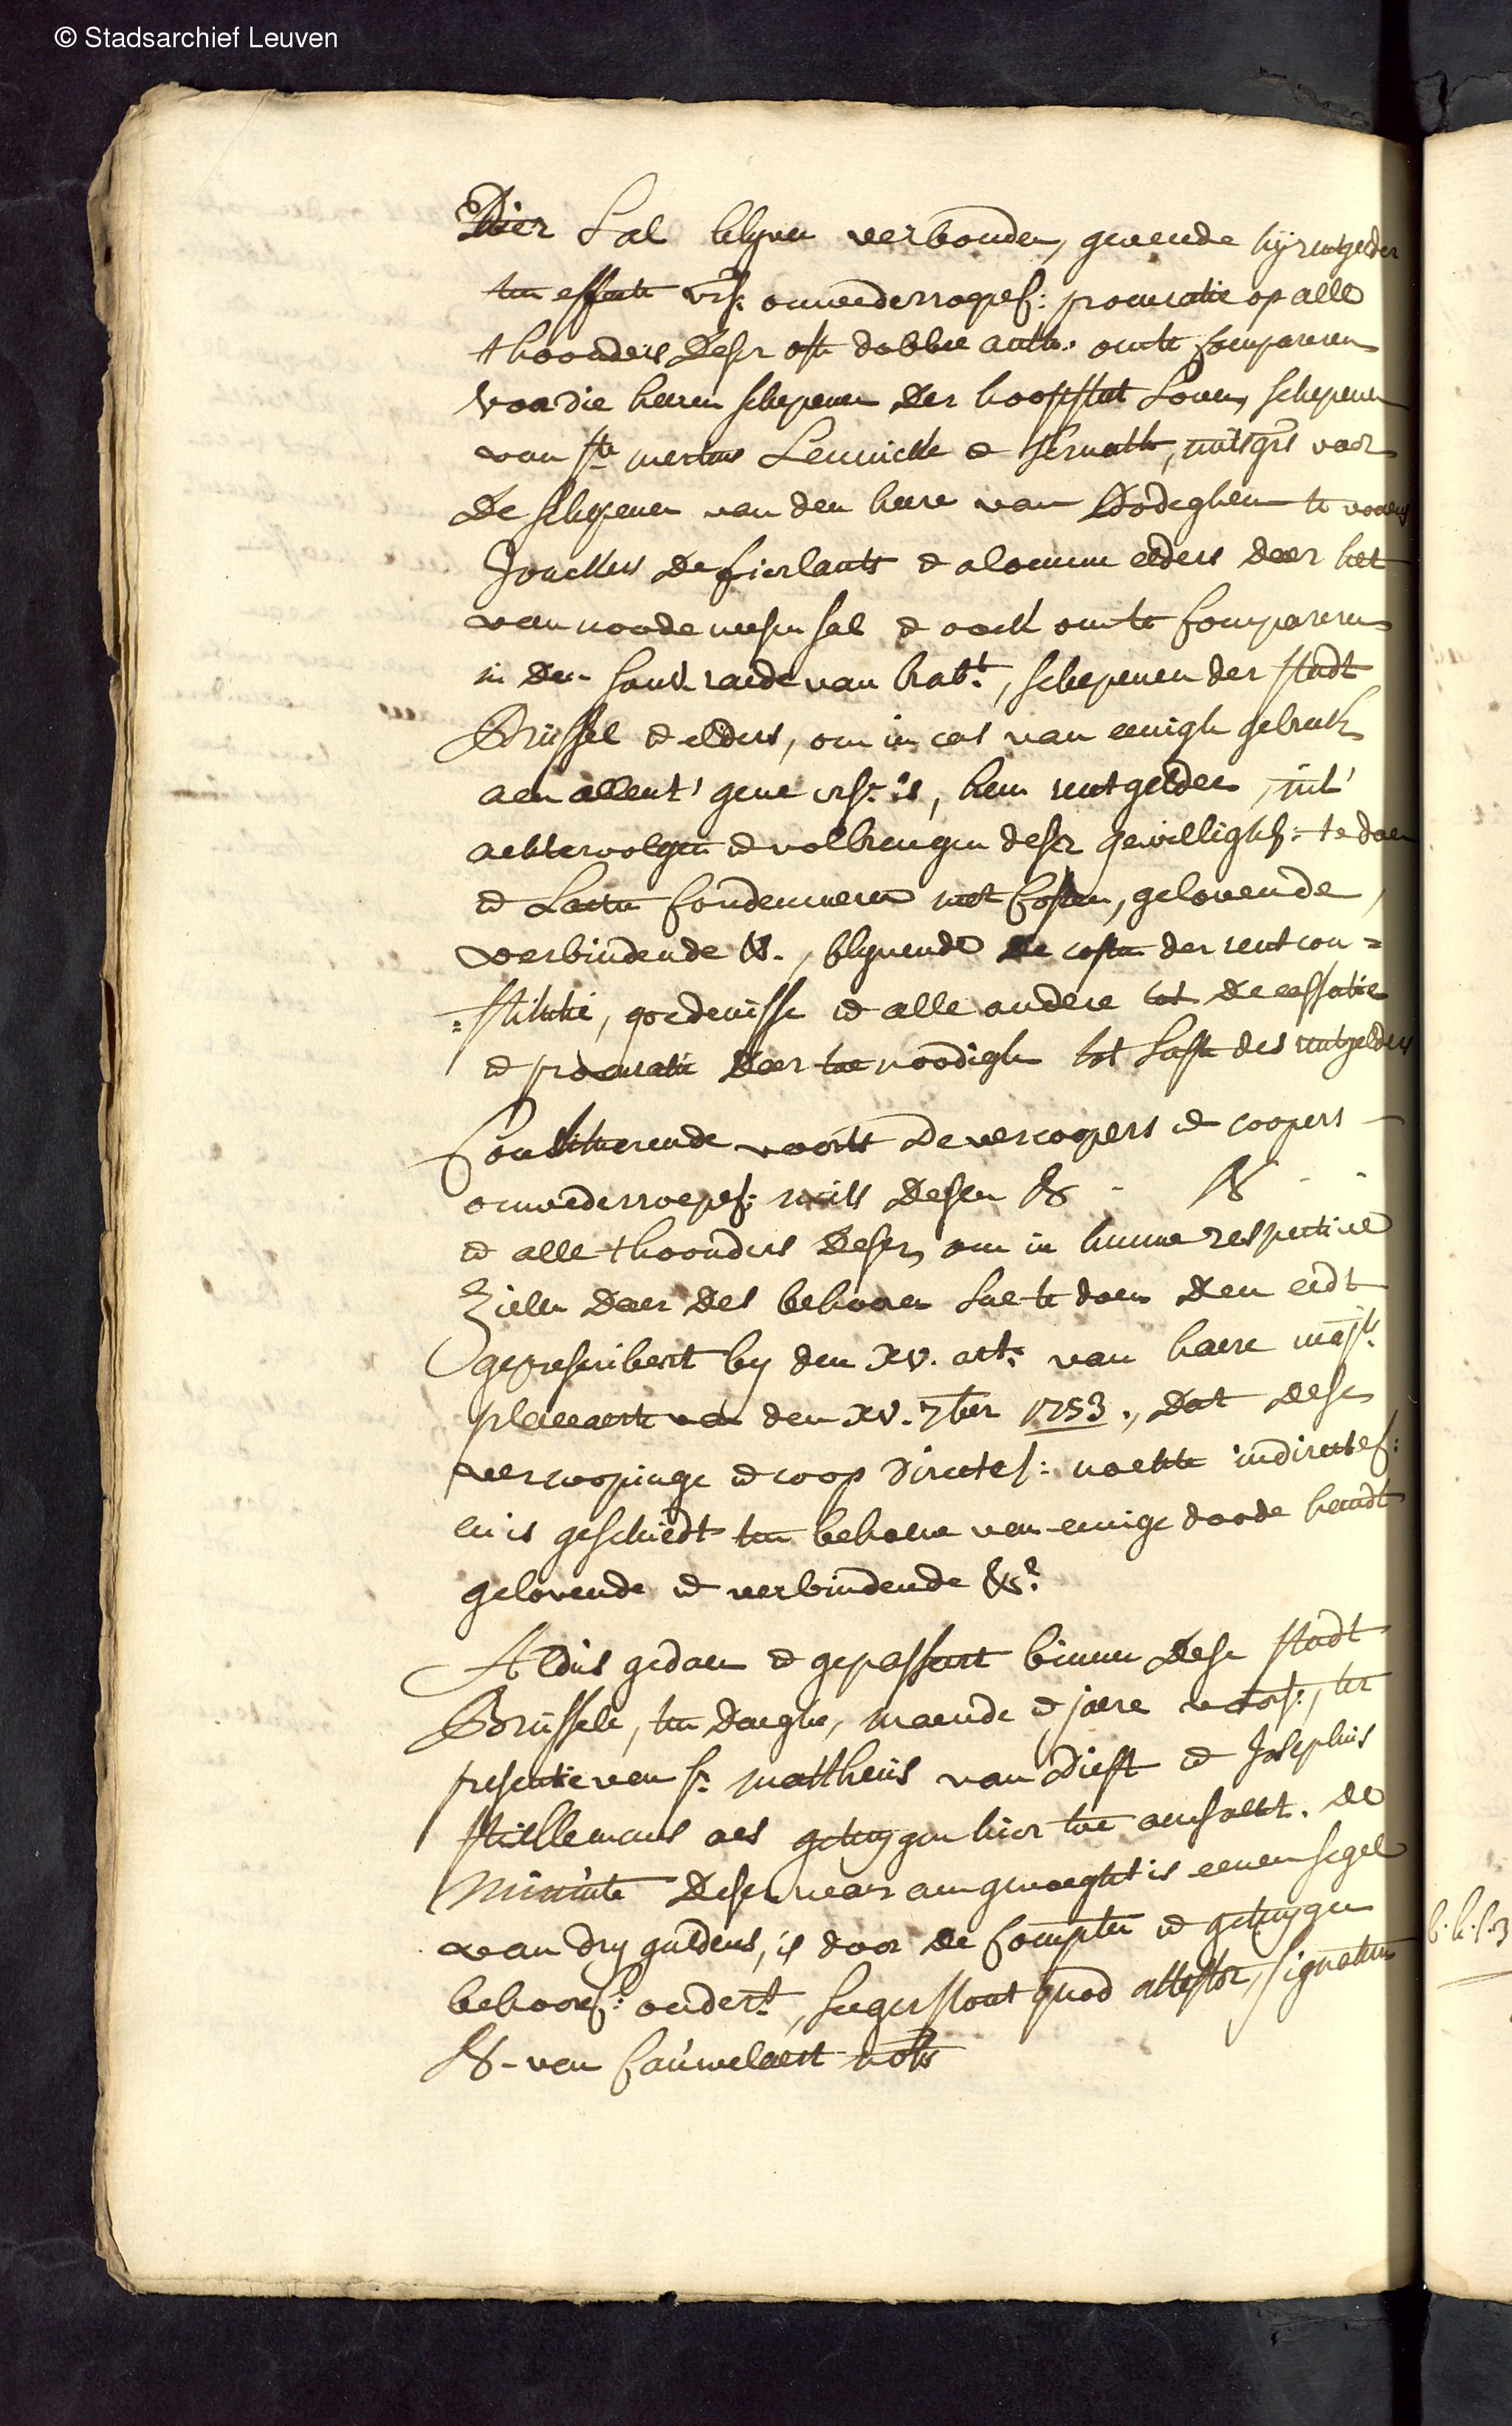 © Stadsarchief Leuven
Dier sal blyven verbonden, gevende hij rentgelder
ten effecte vrs: onwederroepel: procuratie op alle
thoonders deser oft dobbel auth: om te compareren
voor die heeren schepenen der hooftstat Loven, schepenen
van Ste mertens Lennicke & ternath, mitsgrs voor
de schepenen van den heere van Dodeghem te vooren
Jonckers de fierlants & alomme elders daer het
van noode wesen sal & oock om te compareren
in den souv: raede van brabt, schepenen der stadt
Brussel & elders, om in cas van eenigh gebreck
aen allent' gene vrs: is, hem rentgelder, int'
achtervolgen & volbrengen deser gewilligh: te doen
& laeten condemneren met costen, gelovende,
verbindende &., blyvende de costen der rentcon=
=stitutie, goedenisse & alle andere tot de cessatie
& procuratie daer toe noodigh tot laste des rentgelders
Constituerende voorts de vercoopers & coopers
onwederroepel: mits desen & - &
& alle thoonders deser, om in hunne respective
Zielen daer des behooren sal te doen den eedt
geprescribeert by den XV. art: van haere majts
placcaert van den XV. 7ber 1753., dat dese
vercoopinge & coop directel: nochte indirectel:
en is geschiedt ten behoeve van eenige doode handt
gelovende & verbindende &a
Aldus gedaen & gepasseert binnen dese stadt
Brussele, ten daeghe, maende & jaere voors:, ter
presentie van sr mattheus van Diest & Josephus
stillemans als getuygen hier toe aensocht. de
Minute deser waer aengevoeght is eenen segel
van dry guldens, is door de compten & getuygen
behoorl: ondert, leegerstont quod attestor, signatum
&-van Cauwelaert nots